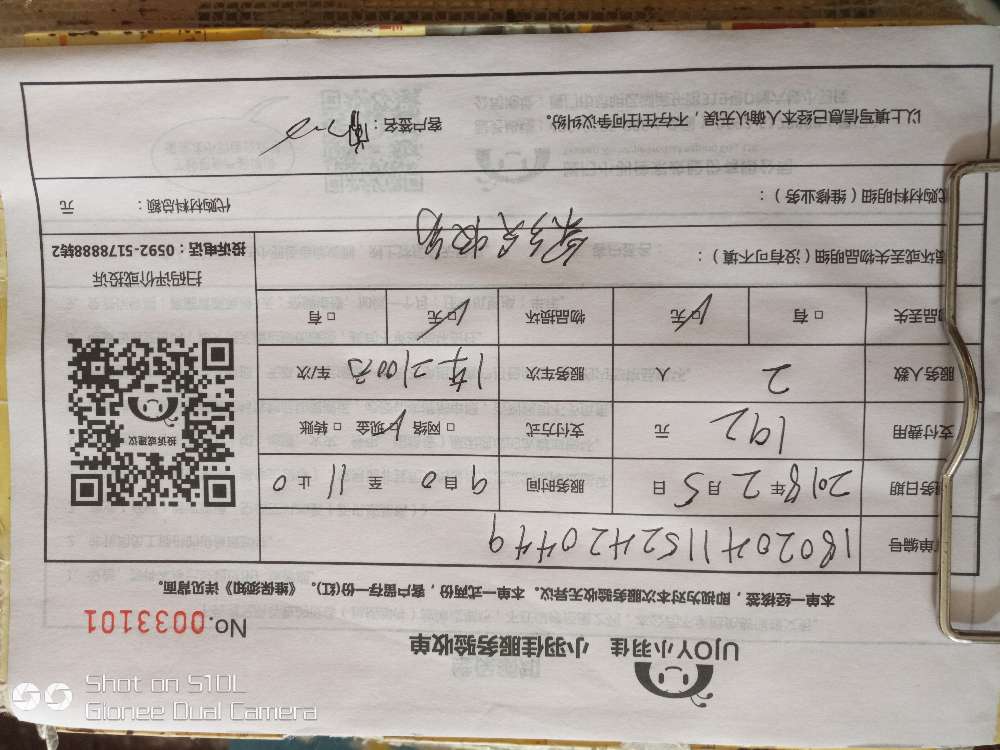 UJOY小羽佳 小羽佳服务验收单
No.0033101
本单一经核签，即视为对本次服务验收无异议。本单一式两份，客户留存一份(红)。《维保须知》详见背面。
单编号 1802041152420449
服务日期 2018年2月5日 服务时间 9自0至11止0
支付费用 192元 支付方式 □网络 ☑现金 □转账
服务人数 2人 服务车次 1车2100元 车/次
物品丢失 □有 ☑无 物品损坏 ☑无 □有
投诉或建议
扫码评价或投诉
投诉电话：0592-5178888转2
损坏或丢失物品明细（没有可不填）：
代购材料明细（维修业务）： 代购材料总额： 元
以上填写信息已经本人确认无误，不存在任何争议纠纷。 客户签名：
Shot on S10L
Gionee Dual Camera